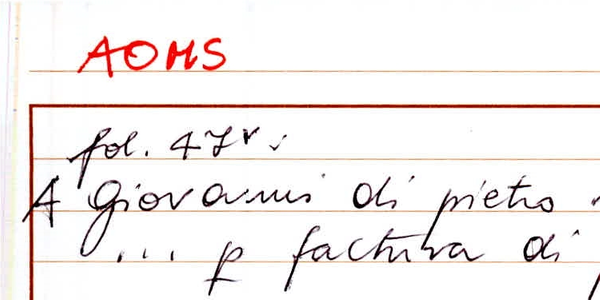 AOMS
fol. 47r:
A Giovanni di pietro
... p factura di